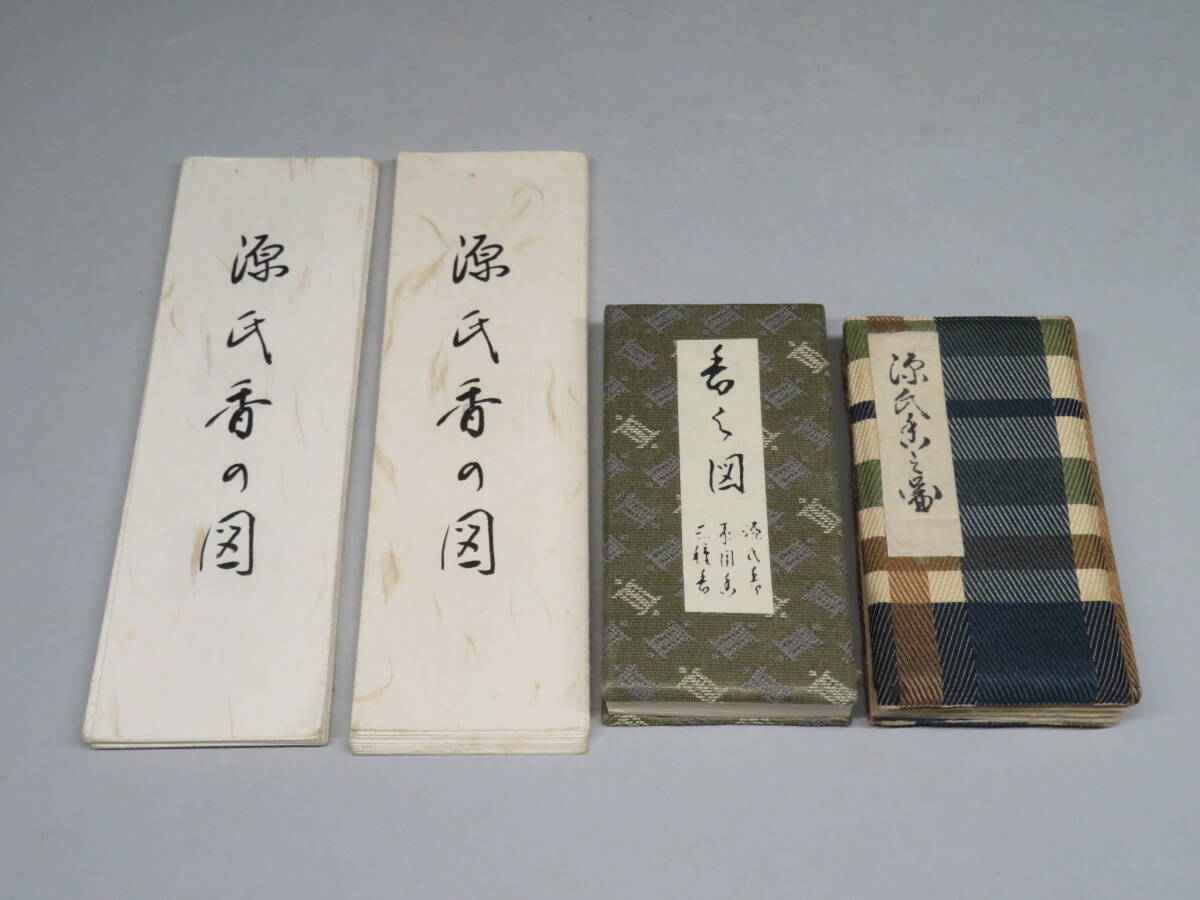 源氏香の図
源氏香の図
香之図
源氏香
系図香
三種香
源氏香之圖